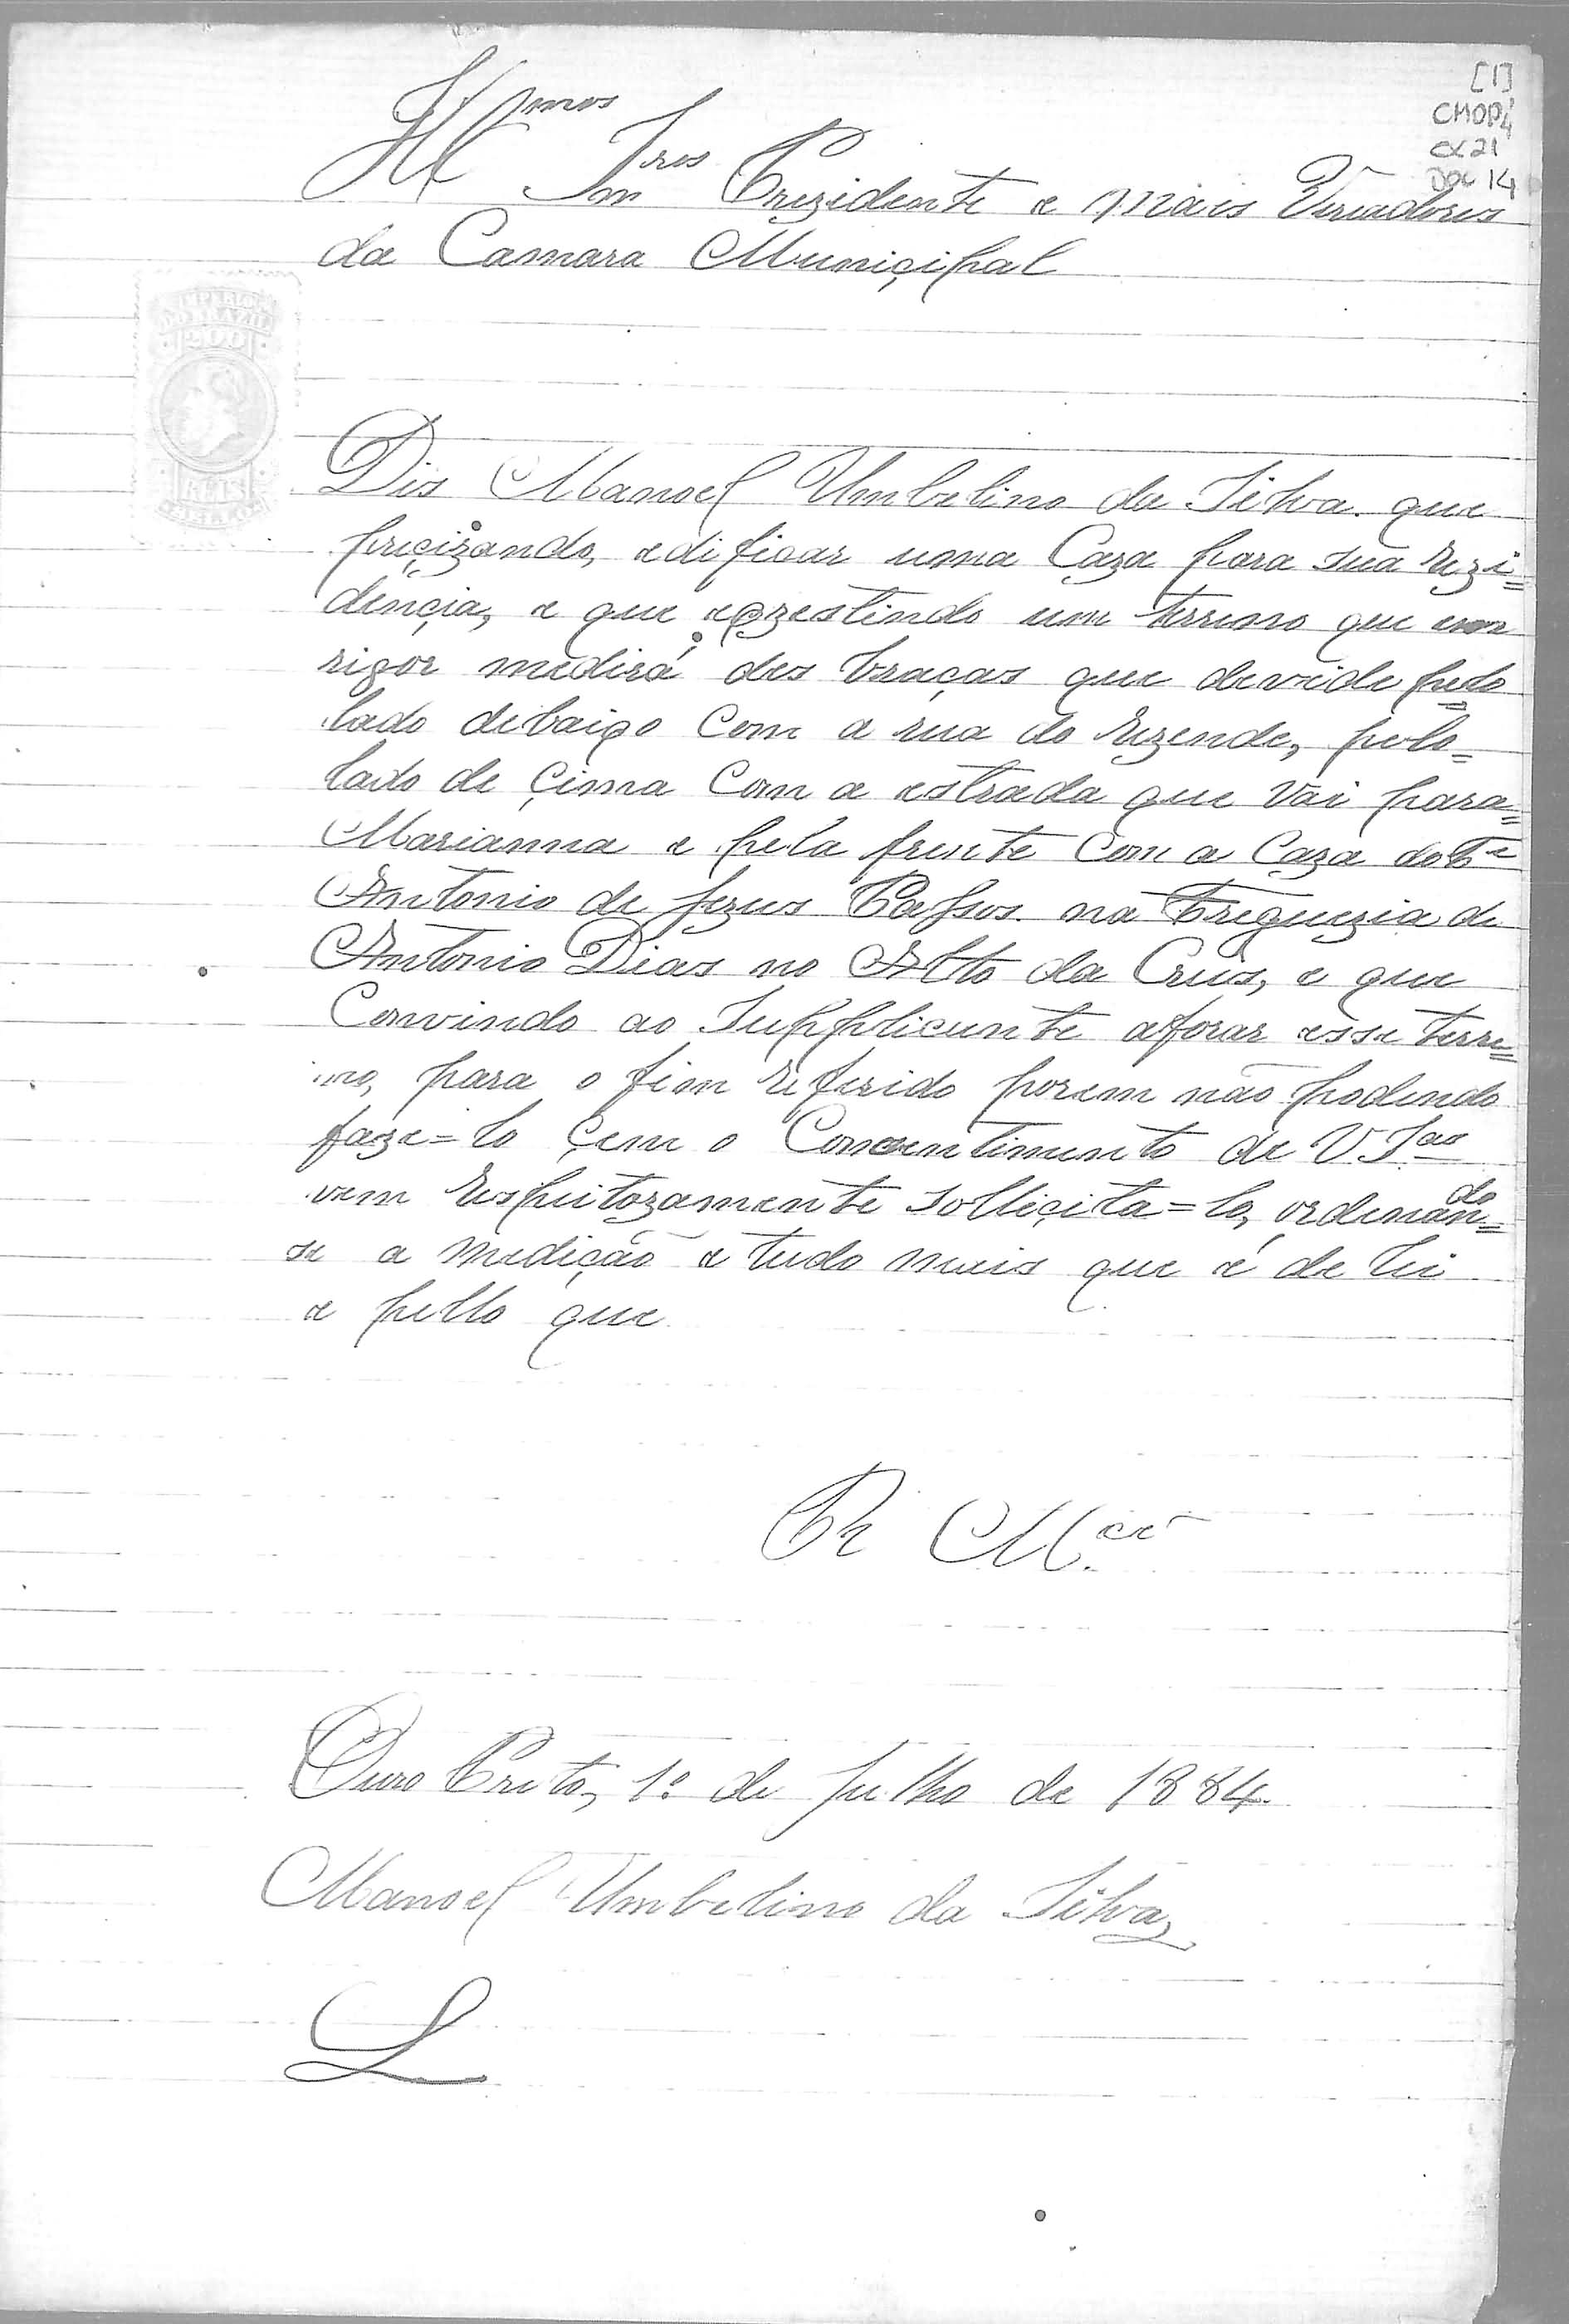 [1]
CMOP/4
cx 21
Doc 14
Ill.mos Snr.res Prezidente e mais Veriadores
da Camara Muniçipal
IMPERIO
DO BRAZIL
200
REIS
Dis Manoel Umbelino da Silva. que
preçizando, edificar uma Caza para sua rezi=
dençia, e que egzestindo um terreno que em
rigor medirá des braças que devide pelo
lado debaixo Com a rua do Rezende, pelo=
lado de çima Com a estrada que vai para=
Marianna e pela frente Com a Caza do Te
Antonio de Jezus Passos na Freguezia de
Antonio Dias no Alto da Crus, e que
Convindo ao Supplicante aforar esse terre=
no, para o fim referido porem não podendo
faze=lo çem o Concentimento de V. S.as
vem respeitozamente solliçita=lo, ordenan=do
se a medição e tudo mais que é de lei
e pello que
Rr M.cê
Ouro Preto, 1º de Julho de 1884.
Manoel Umbelino da Silva